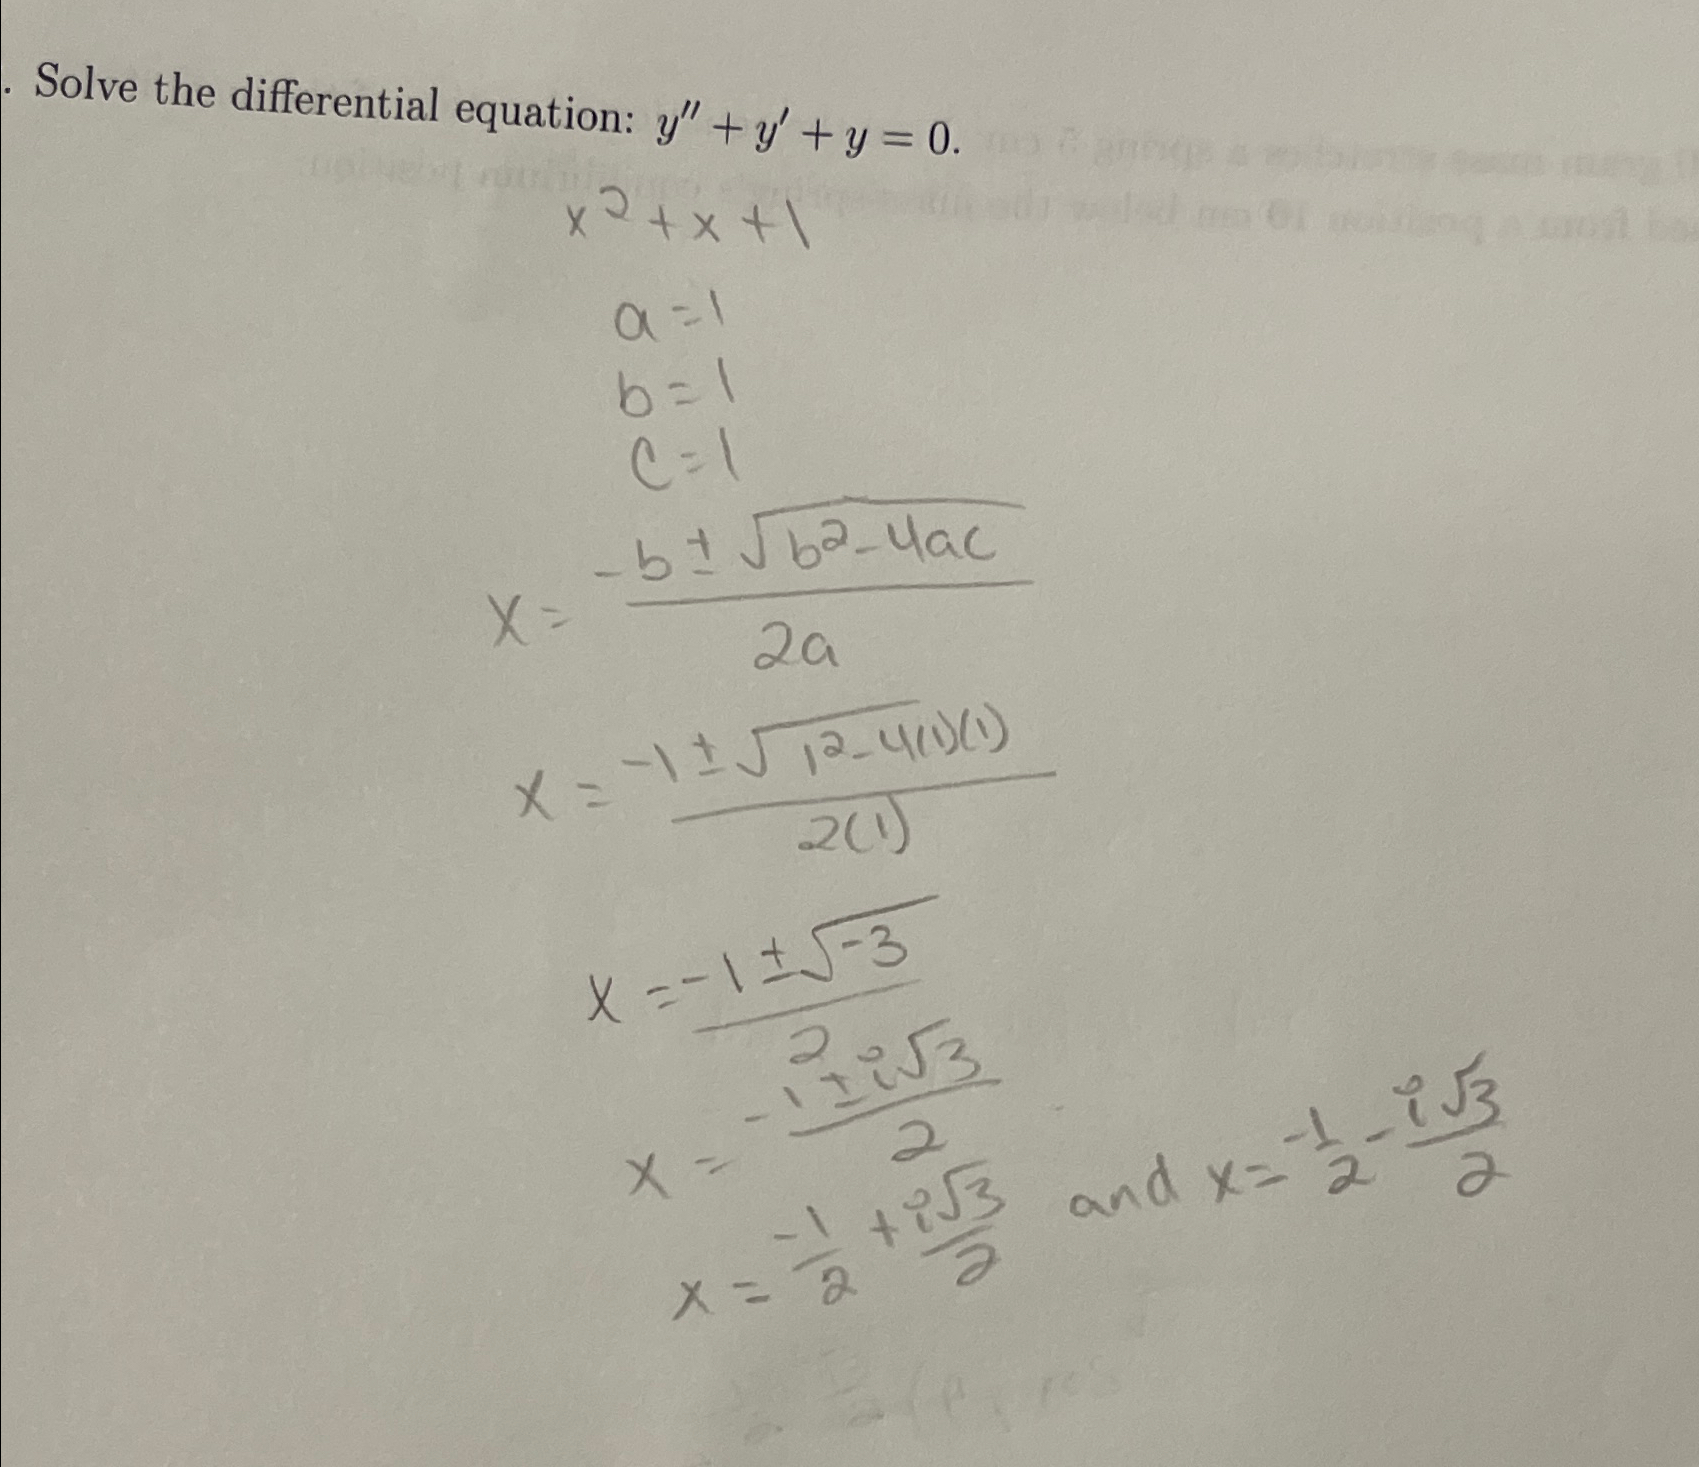 . Solve the differential equation: y″ + y′ + y = 0.
x² + x + 1
a = 1
b = 1
c = 1
x = (-b ± √(b² - 4ac)) / 2a
x = (-1 ± √(1² - 4(1)(1))) / 2(1)
x = (-1 ± √-3) / 2
x = (-1 ± i√3) / 2
x = -1/2 + i√3/2 and x = -1/2 - i√3/2